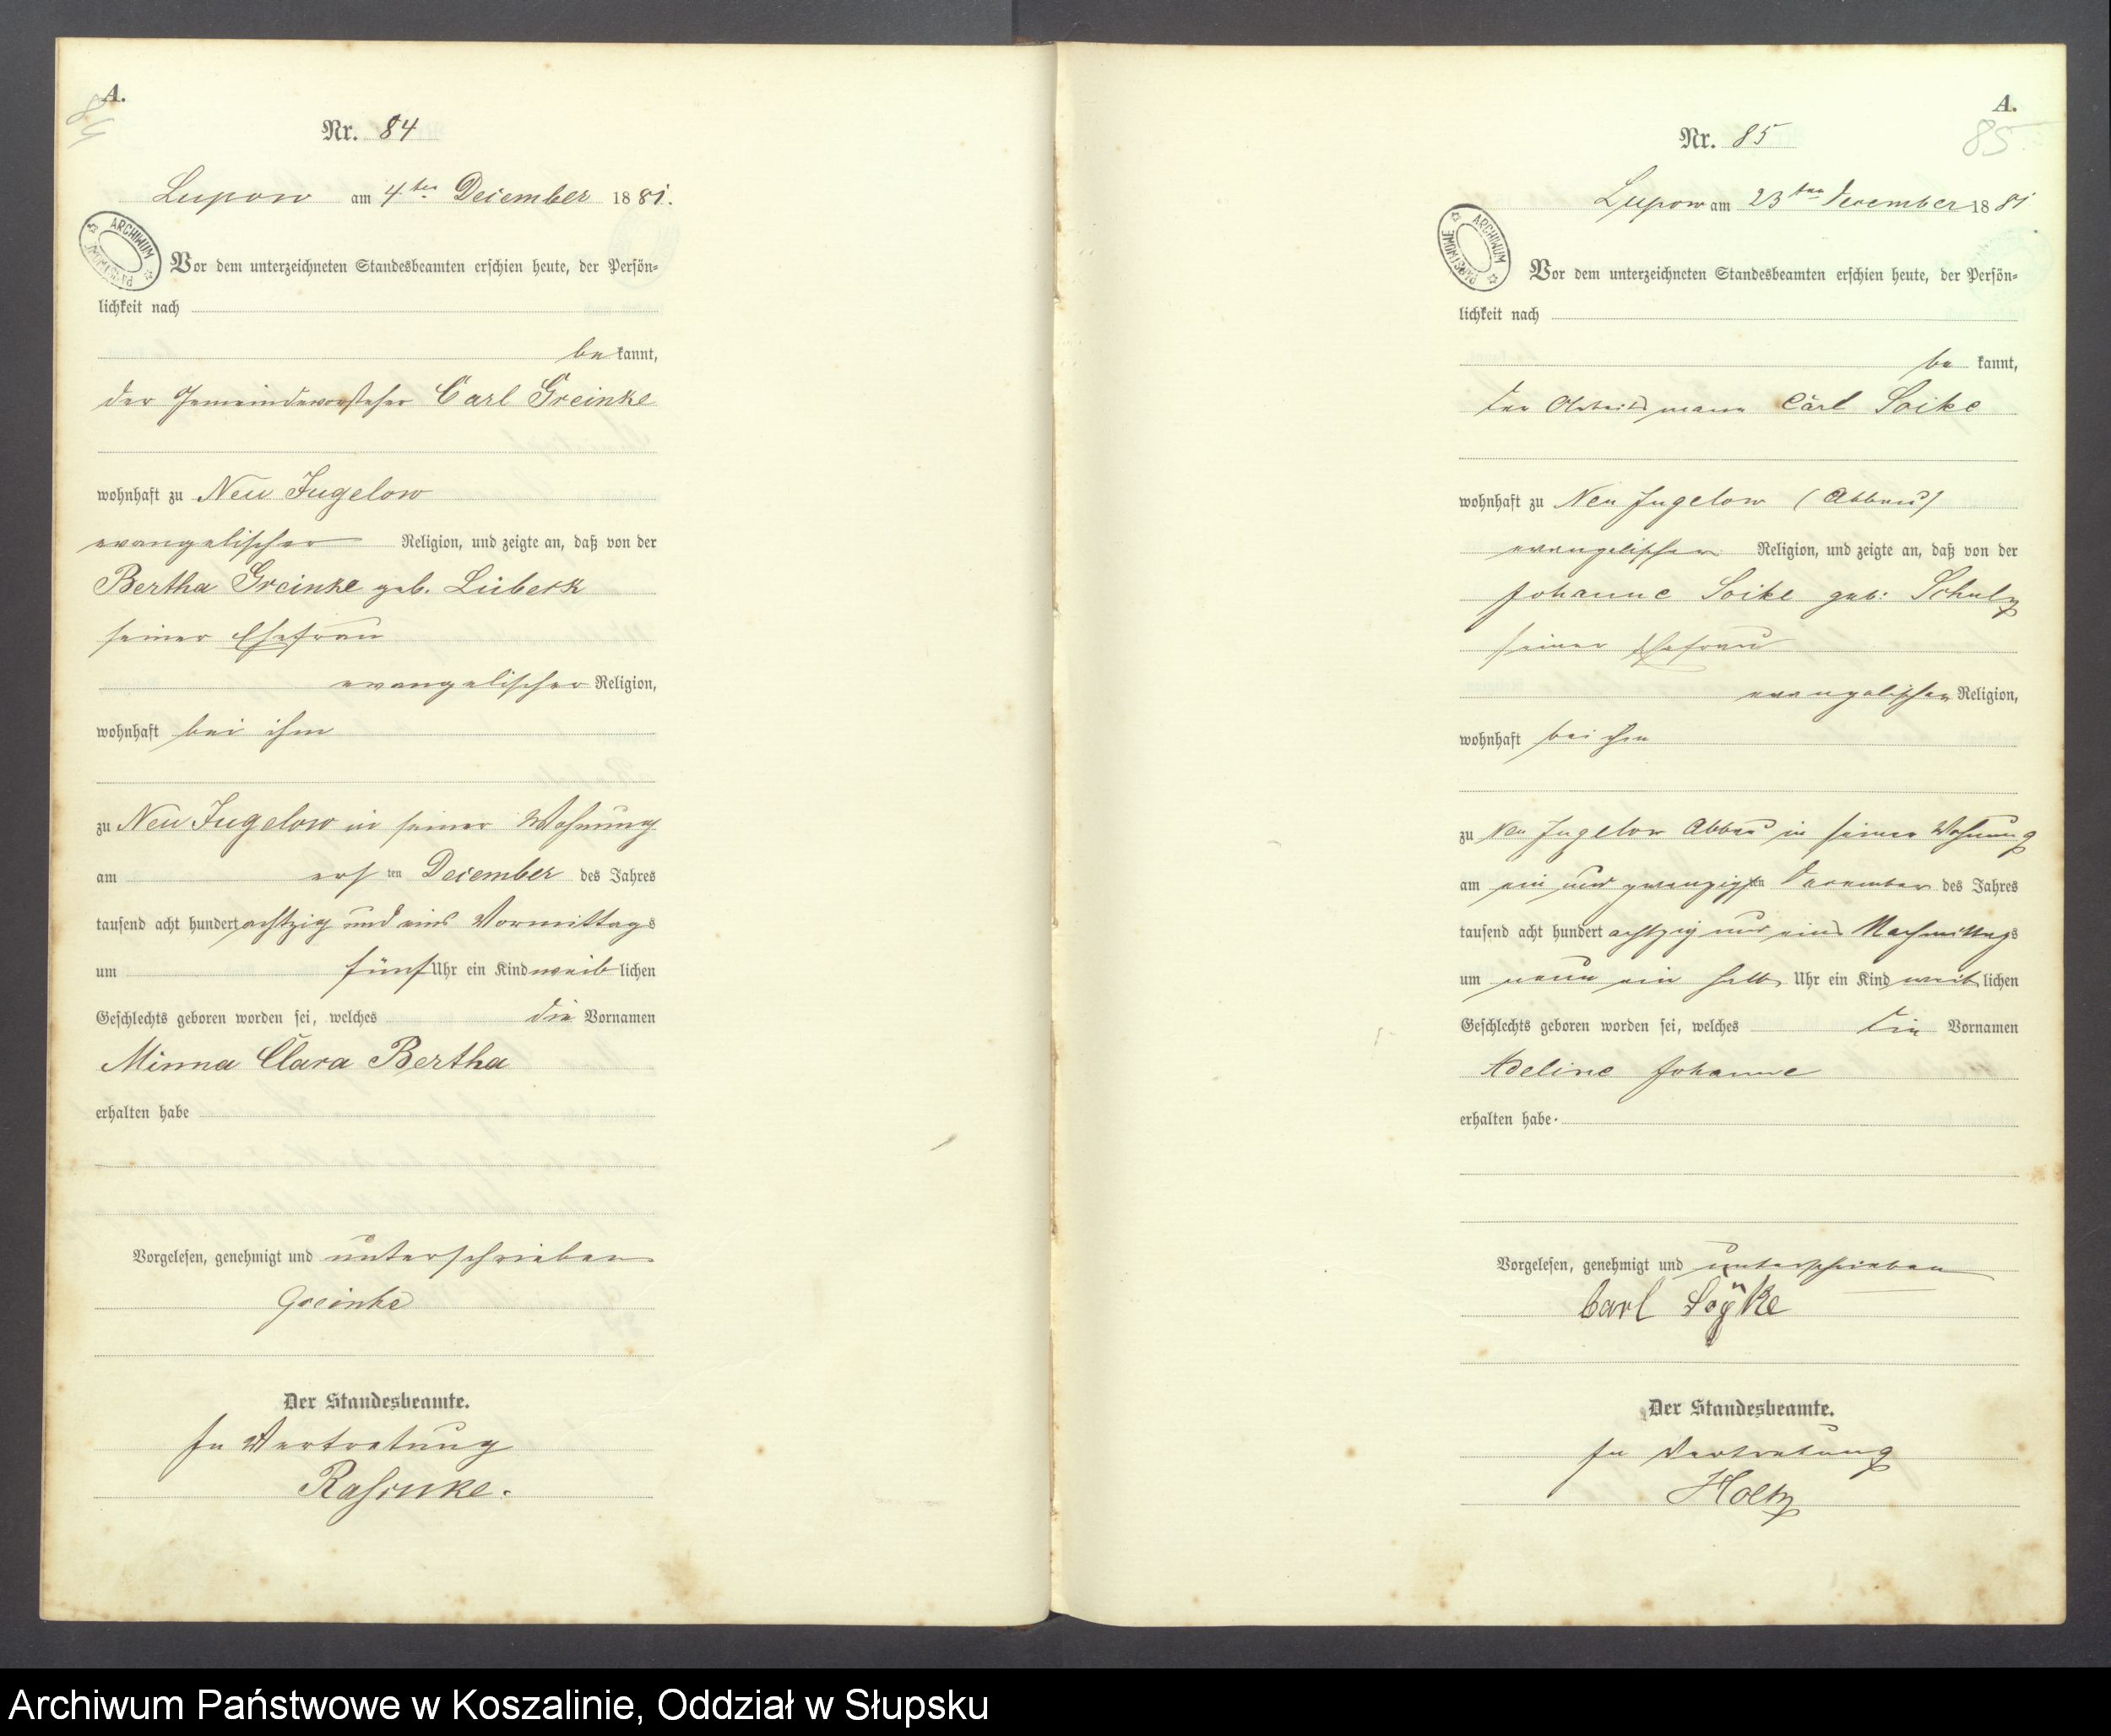 A.
84
Nr. 84
Lupow am 4ten December 1881.
ARCHIWUM PAŃSTWOWE
Vor dem unterzeichneten Standesbeamten erschien heute, der Persön-
lichkeit nach
be kannt,
der Gemeindevorsteher Carl Greinke
wohnhaft zu Neu Jugelow
evangelischer Religion, und zeigte an, daß von der
Bertha Greinke geb. Lübeck
seiner Ehefrau
evangelischer Religion,
wohnhaft bei ihm
zu Neu Jugelow in seiner Wohnung
am ersten December des Jahres
tausend acht hundert achtzig und eins Vormittags
um fünf Uhr ein Kind weiblichen
Geschlechts geboren worden sei, welches die Vornamen
Minna Clara Bertha
erhalten habe
Vorgelesen, genehmigt und unterschrieben
Greinke
Der Standesbeamte.
In Vertretung
A.
85
Nr. 85
Lupow am 23ten December 1881
ARCHIWUM PAŃSTWOWE
Vor dem unterzeichneten Standesbeamten erschien heute, der Persön-
lichkeit nach
be kannt,
der Arbeitsmann Carl Soike
wohnhaft zu Neu Jugelow (Abbau)
evangelischer Religion, und zeigte an, daß von der
Johanne Soike geb: Schulz
seiner Ehefrau
evangelischer Religion,
wohnhaft bei ihm
zu Neu Jugelow Abbau in seiner Wohnung
am ein und zwanzigsten December des Jahres
tausend acht hundert achtzig und eins Nachmittags
um neun ein halb Uhr ein Kind weiblichen
Geschlechts geboren worden sei, welches die Vornamen
Adeline Johanne
erhalten habe.
Vorgelesen, genehmigt und unterschrieben
Carl Söyke
Der Standesbeamte.
In Vertretung
Holtz
Archiwum Państwowe w Koszalinie, Oddział w Słupsku